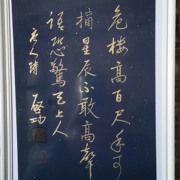 危樓高百尺手可
摘星辰不敢高聲
語恐驚天上人
唐人詩 启功